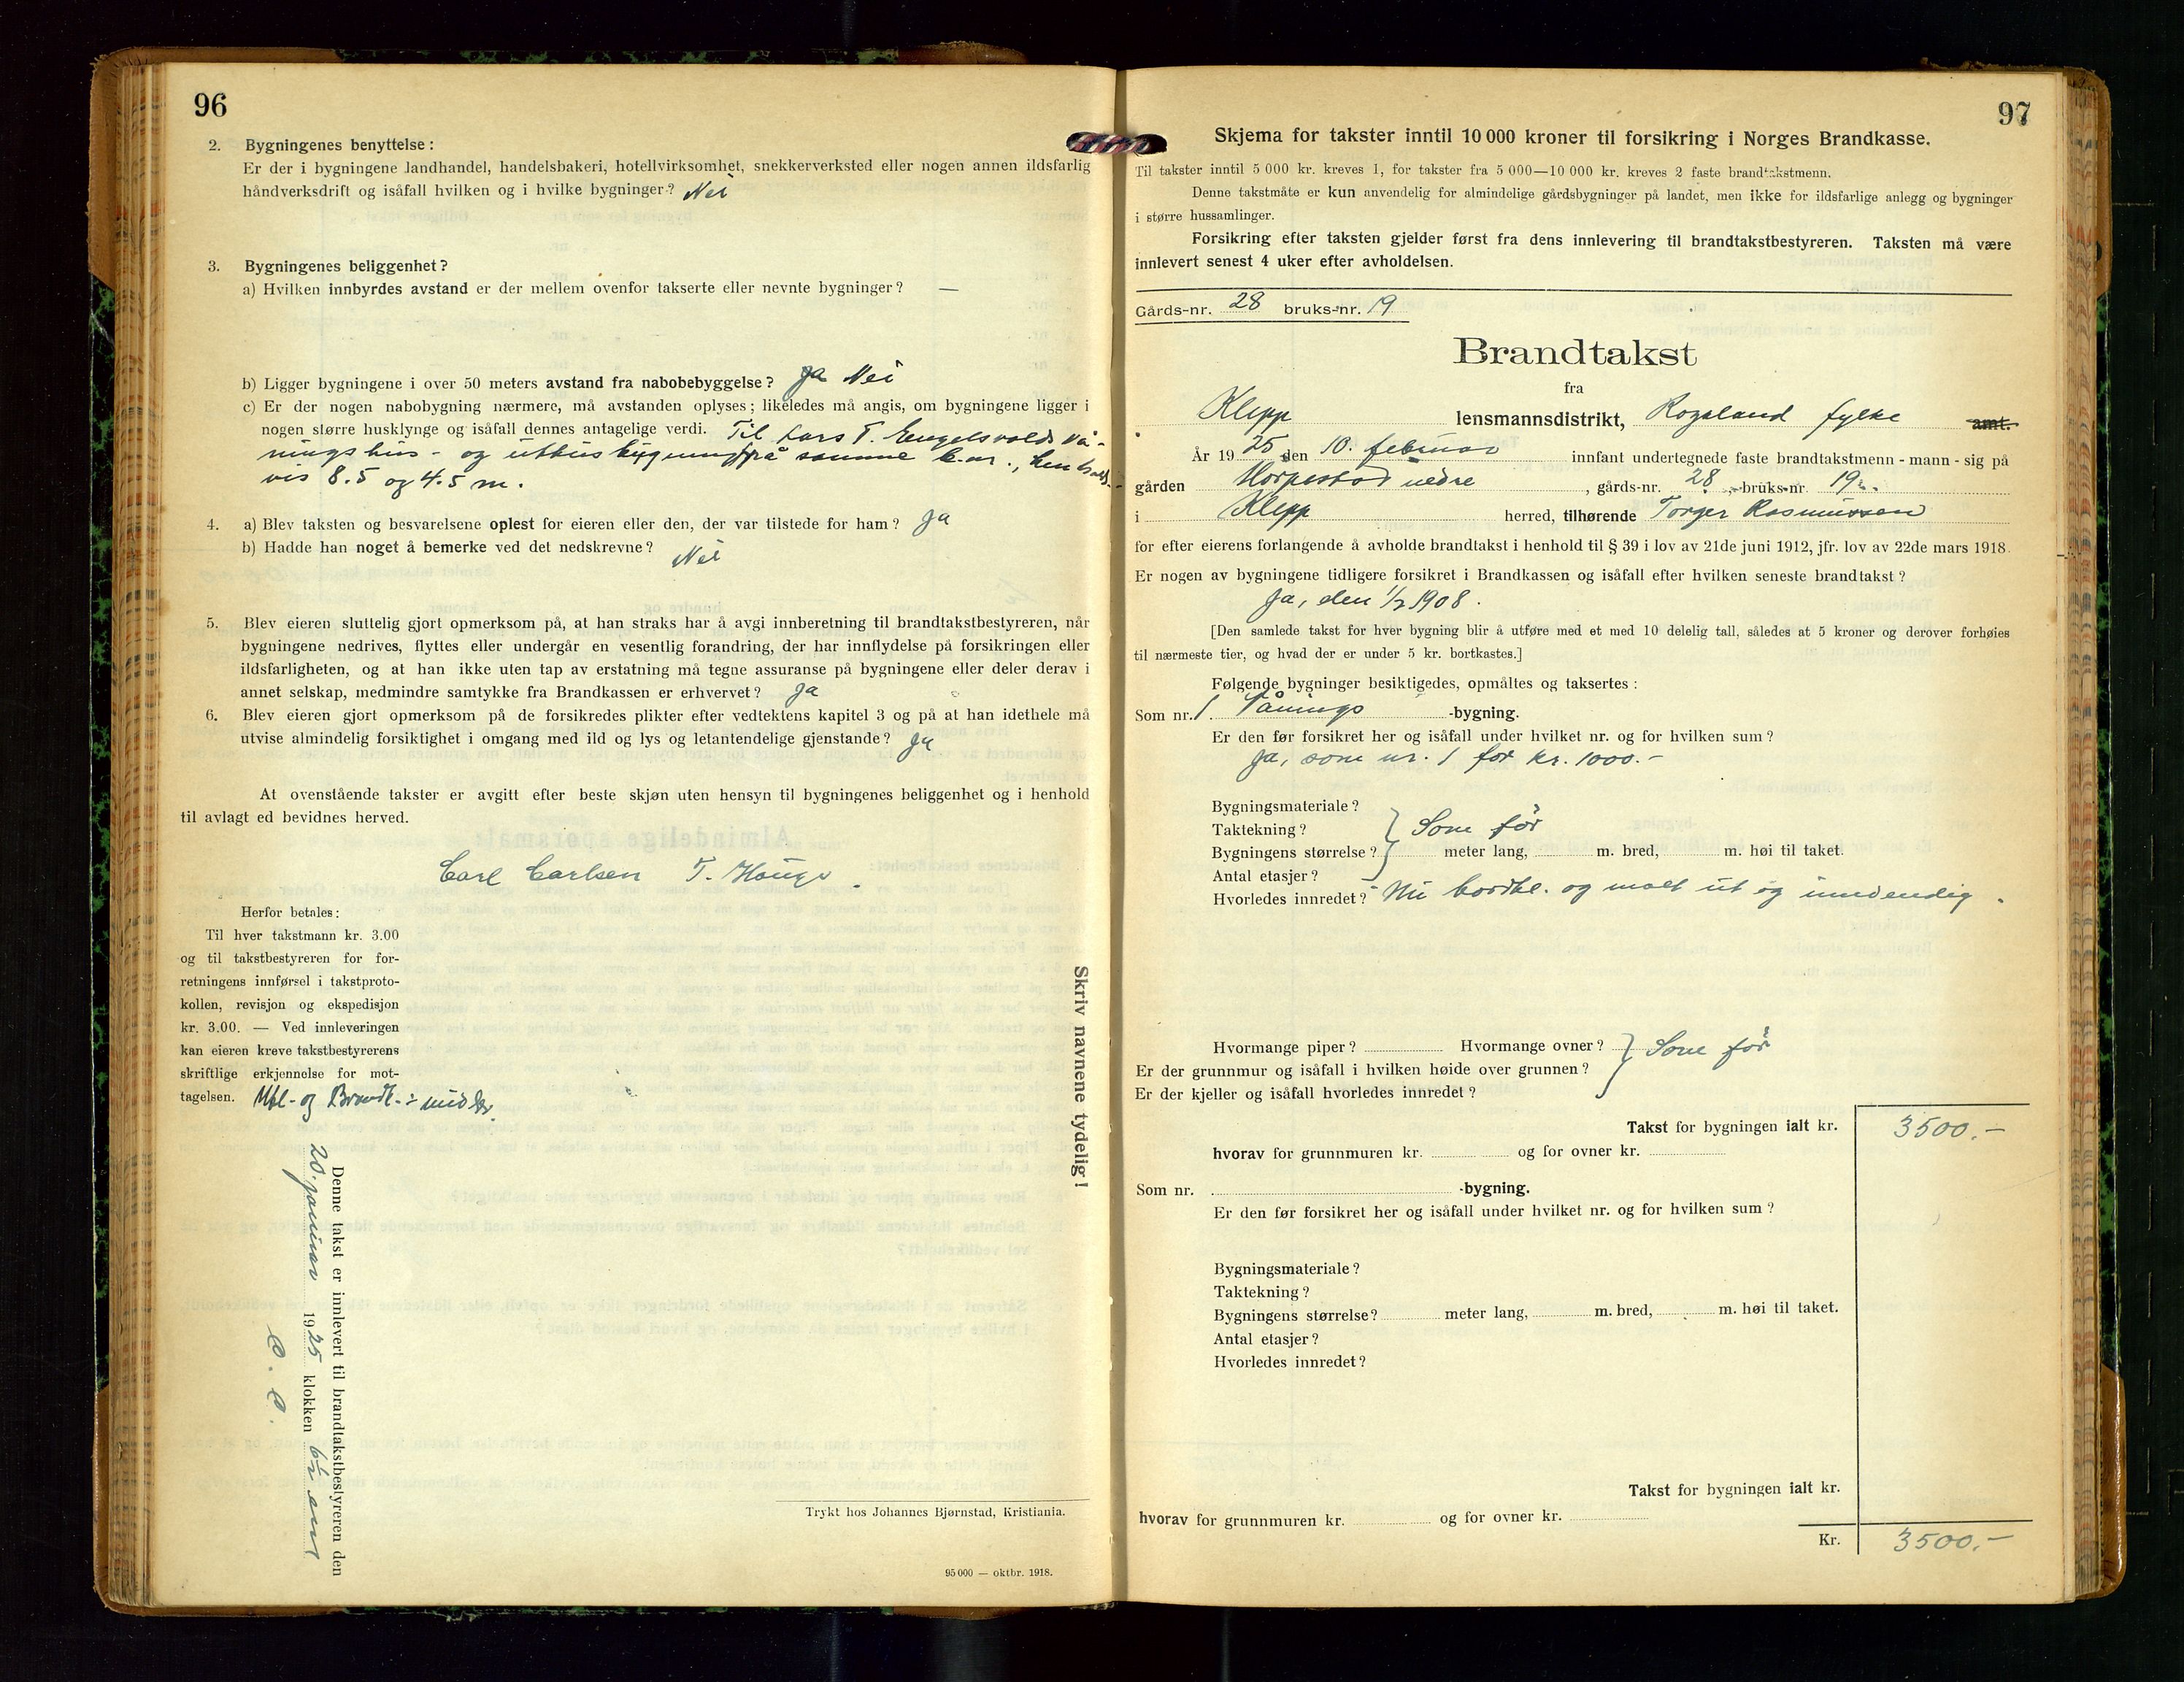 96
2. Bygningenes benyttelse:
Er der i bygningene landhandel, handelsbakeri, hotellvirksomhet, snekkerverksted eller nogen annen ildsfarlig
håndverksdrift og isåfall hvilken og i hvilke bygninger? Nei
3. Bygningenes beliggenhet?
a) Hvilken innbyrdes avstand er der mellem ovenfor takserte eller nevnte bygninger? —
b) Ligger bygningene i over 50 meters avstand fra nabobebyggelse? Ja Nei
c) Er der nogen nabobygning nærmere, må avstanden oplyses; likeledes må angis, om bygningene ligger i
nogen større husklynge og isåfall dennes antagelige verdi. Til Lars T. Engelsvolds vå-
ningshus- og uthusbygning på samme b.nr., henholds-
vis 8.5 og 4.5 m.
4. a) Blev taksten og besvarelsene oplest for eieren eller den, der var tilstede for ham? Ja
b) Hadde han noget å bemerke ved det nedskrevne? Nei
5. Blev eieren sluttelig gjort opmerksom på, at han straks har å avgi innberetning til brandtakstbestyreren, når
bygningene nedrives, flyttes eller undergår en vesentlig forandring, der har innflydelse på forsikringen eller
ildsfarligheten, og at han ikke uten tap av erstatning må tegne assuranse på bygningene eller deler derav i
annet selskap, medmindre samtykke fra Brandkassen er erhvervet? Ja
6. Blev eieren gjort opmerksom på de forsikredes plikter efter vedtektens kapitel 3 og på at han idethele må
utvise almindelig forsiktighet i omgang med ild og lys og letantendelige gjenstande? Ja
At ovenstående takster er avgitt efter beste skjøn uten hensyn til bygningenes beliggenhet og i henhold
til avlagt ed bevidnes herved.
Carl Carlsen T. Hauge.
Herfor betales:
Til hver takstmann kr. 3.00
og til takstbestyreren for for-
retningens innførsel i takstproto-
kollen, revisjon og ekspedisjon
kr. 3.00. — Ved innleveringen
kan eieren kreve takstbestyrerens
skriftlige erkjennelse for mot-
tagelsen.
Denne takst er innlevert til brandtakstbestyreren den
20. januar 1925 klokken 6½ em
C. C.
Skriv navnene tydelig!
Trykt hos Johannes Bjørnstad, Kristiania.
95 000 — oktbr. 1918.
97
Skjema for takster inntil 10 000 kroner til forsikring i Norges Brandkasse.
Til takster inntil 5 000 kr. kreves 1, for takster fra 5 000—10 000 kr. kreves 2 faste brandtakstmenn.
Denne takstmåte er kun anvendelig for almindelige gårdsbygninger på landet, men ikke for ildsfarlige anlegg og bygninger
i større hussamlinger.
Forsikring efter taksten gjelder først fra dens innlevering til brandtakstbestyreren. Taksten må være
innlevert senest 4 uker efter avholdelsen.
Gårds-nr. 28 bruks-nr. 19
Brandtakst
fra
Klepp lensmannsdistrikt, Rogaland fylke amt.
År 1925 den 10. februar innfant undertegnede faste brandtakstmenn - mann - sig på
gården Horpestad nedre, gårds-nr. 28, bruks-nr. 19.
i Klepp herred, tilhørende Torger Rasmussen
for efter eierens forlangende å avholde brandtakst i henhold til § 39 i lov av 21de juni 1912, jfr. lov av 22de mars 1918.
Er nogen av bygningene tidligere forsikret i Brandkassen og isåfall efter hvilken seneste brandtakst?
Ja, den 1/2 1908.
[Den samlede takst for hver bygning blir å utføre med et med 10 delelig tall, således at 5 kroner og derover forhøies
til nærmeste tier, og hvad der er under 5 kr. bortkastes.]
Følgende bygninger besiktigedes, opmåltes og taksertes:
Som nr. 1. Vånings -bygning.
Er den før forsikret her og isåfall under hvilket nr. og for hvilken sum?
Ja, som nr. 1 for kr. 1000.-
Bygningsmateriale?
Taktekning? } Som før
Bygningens størrelse? meter lang, m. bred, m. høi til taket.
Antal etasjer?
Hvorledes innredet? Nu bordkl. og malt ut og innvendig.
Hvormange piper? Hvormange ovner? } Som før
Er der grunnmur og isåfall i hvilken høide over grunnen?
Er der kjeller og isåfall hvorledes innredet?
Takst for bygningen ialt kr. 3500.-
hvorav for grunnmuren kr. og for ovner kr.
Som nr. -bygning.
Er den før forsikret her og isåfall under hvilket nr. og for hvilken sum?
Bygningsmateriale?
Taktekning?
Bygningens størrelse? meter lang, m. bred, m. høi til taket.
Antal etasjer?
Hvorledes innredet?
Takst for bygningen ialt kr.
hvorav for grunnmuren kr. og for ovner kr.
Kr. 3500.-